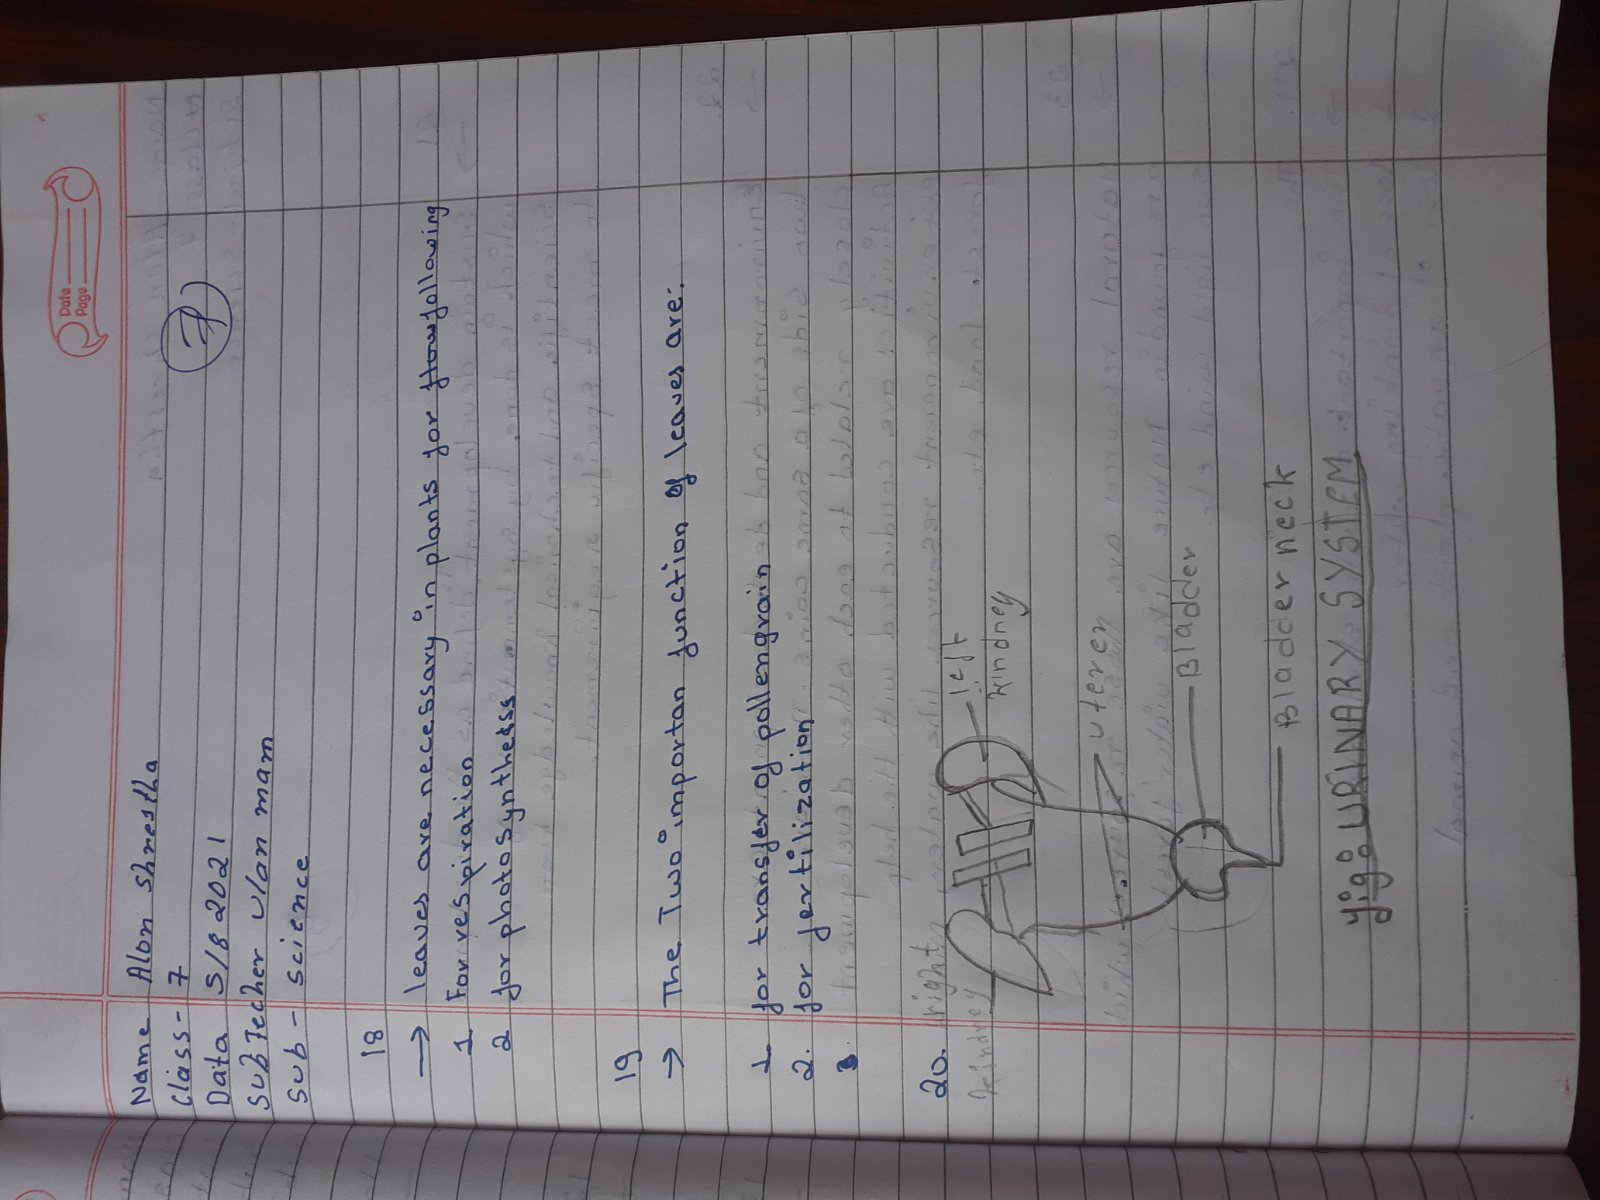 Date
Page
7
Name Alon shrestha
Class - 7
Data 5/8 2021
Sub Techer mam
Sub - science
18
→ leaves are necessary in plants for following
1 For respiration
2 for photosynthesss
19
→ The Two importan function of leaves are:
1 for transfer of pollengrain
2. for fertilization
3
20. right
kindney
left
kindney
uterer
Bladder
Bladder neck
fig: URINARY SYSTEM